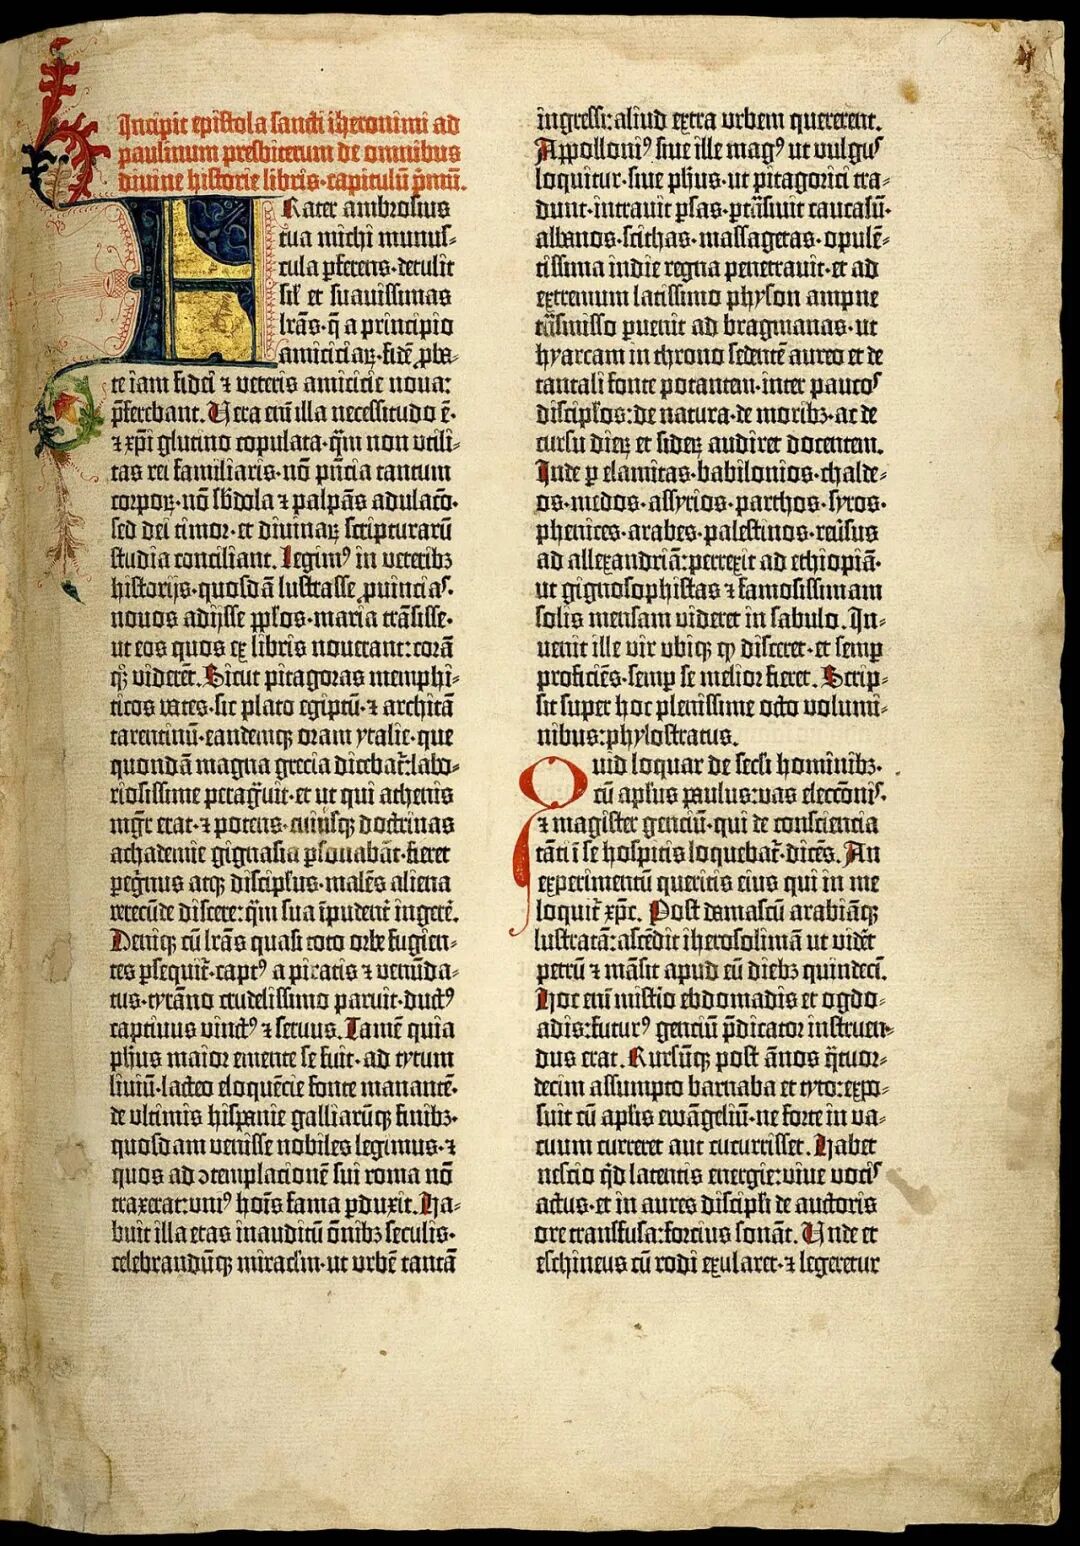 Incipit epistola sancti iheronimi ad
paulinum presbiterum de omnibus
divine historie libris·capitulū p̄mū.
Frater ambrosius
tua michi munus-
cula ꝑferens·detulit
sil̄ et suavissimas
lr̄as·q̄ a principio
amiciciaꝝ·fidē ꝓba-
te iam fidei ⁊ veteris amicicie nova:
p̄ferebant. Vera em̄ illa necessitudo ē·
⁊ xp̄i glutino copulata·q̄m non utili-
tas rei familiaris·nō pn̄cia tantum
corpoꝝ·nō sb̄dola ⁊ palpās adulac̄o·
sed dei timor·et divinaꝝ scripturarū
studia conciliant. Legimꝰ in veteribꝫ
historijs·quosdā lustrasse ꝓvincias·
novos adijsse pp̄los·maria trāsisse·
ut eos quos ex libris noverant: corā
qꝫ viderēt. Sicut pitagoras memphi-
ticos vates·sic plato egiptū·⁊ architā
tarentinū·eandemqꝫ oram ytalie·que
quondā magna grecia dicebat̄: labo-
riosissime peragͣvit·et ut qui athenis
mgr̄ erat·⁊ potens·cuiusqꝫ doctrinas
achademie gignasia ꝑsonabāt·fieret
peg̓nus atqꝫ discipl̓us·malēs aliena
verecūde discere: q̄m sua īpudent̄ ingerē.
Deniqꝫ cū lr̄as quasi toto orbe fugien-
tes ꝑsequit̄·captꝰ a piratis ⁊ venūda-
tus·tyrāno crudelissimo paruit·ductꝰ
captivus vinctꝰ ⁊ servus. Tamē quia
ph̄us maior emente se fuit·ad tytum
liviū·lacteo eloquēcie fonte manantē·
de ultimis hispanie galliarūqꝫ finibꝫ·
quosdam venisse nobiles legimus·⁊
quos ad ↄtemplacionē sui roma nō
traxerat: unīꝰ hoīs fama ꝑduxit. Ha-
buit illa etas inauditū ōnibꝫ seculis·
celebrandūqꝫ miraclm̄·ut urbē tantā
ingressi: aliud extra urbem quererent.
Appolloniꝰ sive ille magꝰ ut vulgus
loquitur·sive ph̄us·ut pitagorici tra-
dunt·intravit ꝑsas·ptrāsivit caucasū·
albanos·scithas·massagetas·opulē-
tissima indie regna penetravit·et ad
extremum latissimo physon ampne
trāsmisso ꝑvenit ad bragmanas·ut
hyarcam in throno sedentē aureo et de
tantali fonte potantem·inter paucos
discipl̓os: de natura·de moribꝫ·ac de
cursu dieꝝ et sideꝝ audiret docentem.
Inde ꝑ elamitas·babilonios·chalde-
os·medos·assyrios·parthos·syros·
phenices·arabes·palestinos·rev̓sus
ad allexandriā: perrexit ad ethiopiā·
ut gignosophistas ⁊ famosissimam
solis mensam videret in sabulo. In-
venit ille vir ubiqꝫ qđ disceret·et semꝑ
proficiēs·semꝑ se melior fieret. Scrip-
sit super hoc plenissime octo volumi-
nibus: phylostratus.
Quid loquar de secl̓i hominibꝫ·
cū apl̓us paulus: vas elecc̄onis·
⁊ magister genciū·qui de consciencia
tāti ī se hospitis loquebat̄·dicēs. An
experimentū queritis eius qui in me
loquit̄ xp̄c. Post damascū arabiāqꝫ
lustratā: ascēdit iherosolimā ut vidēt
petrū ⁊ māsit apud eū diebꝫ quindeci.
Hoc em̄ misterio ebdomadis et ogdo-
adis: futurꝰ genciū p̄dicator instruen-
dus erat. Rursūqꝫ post ānos q̄tuor-
decim assumpto barnaba et tyto: expo-
suit cū apl̓is ewāgeliū·ne forte in va-
cuum curreret aut cucurrisset. Habet
nescio qđ latentis energie: vive vocis
actus·et in aures discipl̓i de auctoris
ore transfusa: forcius sonāt. Unde et
eschineus cū rodi exularet·⁊ legeretur